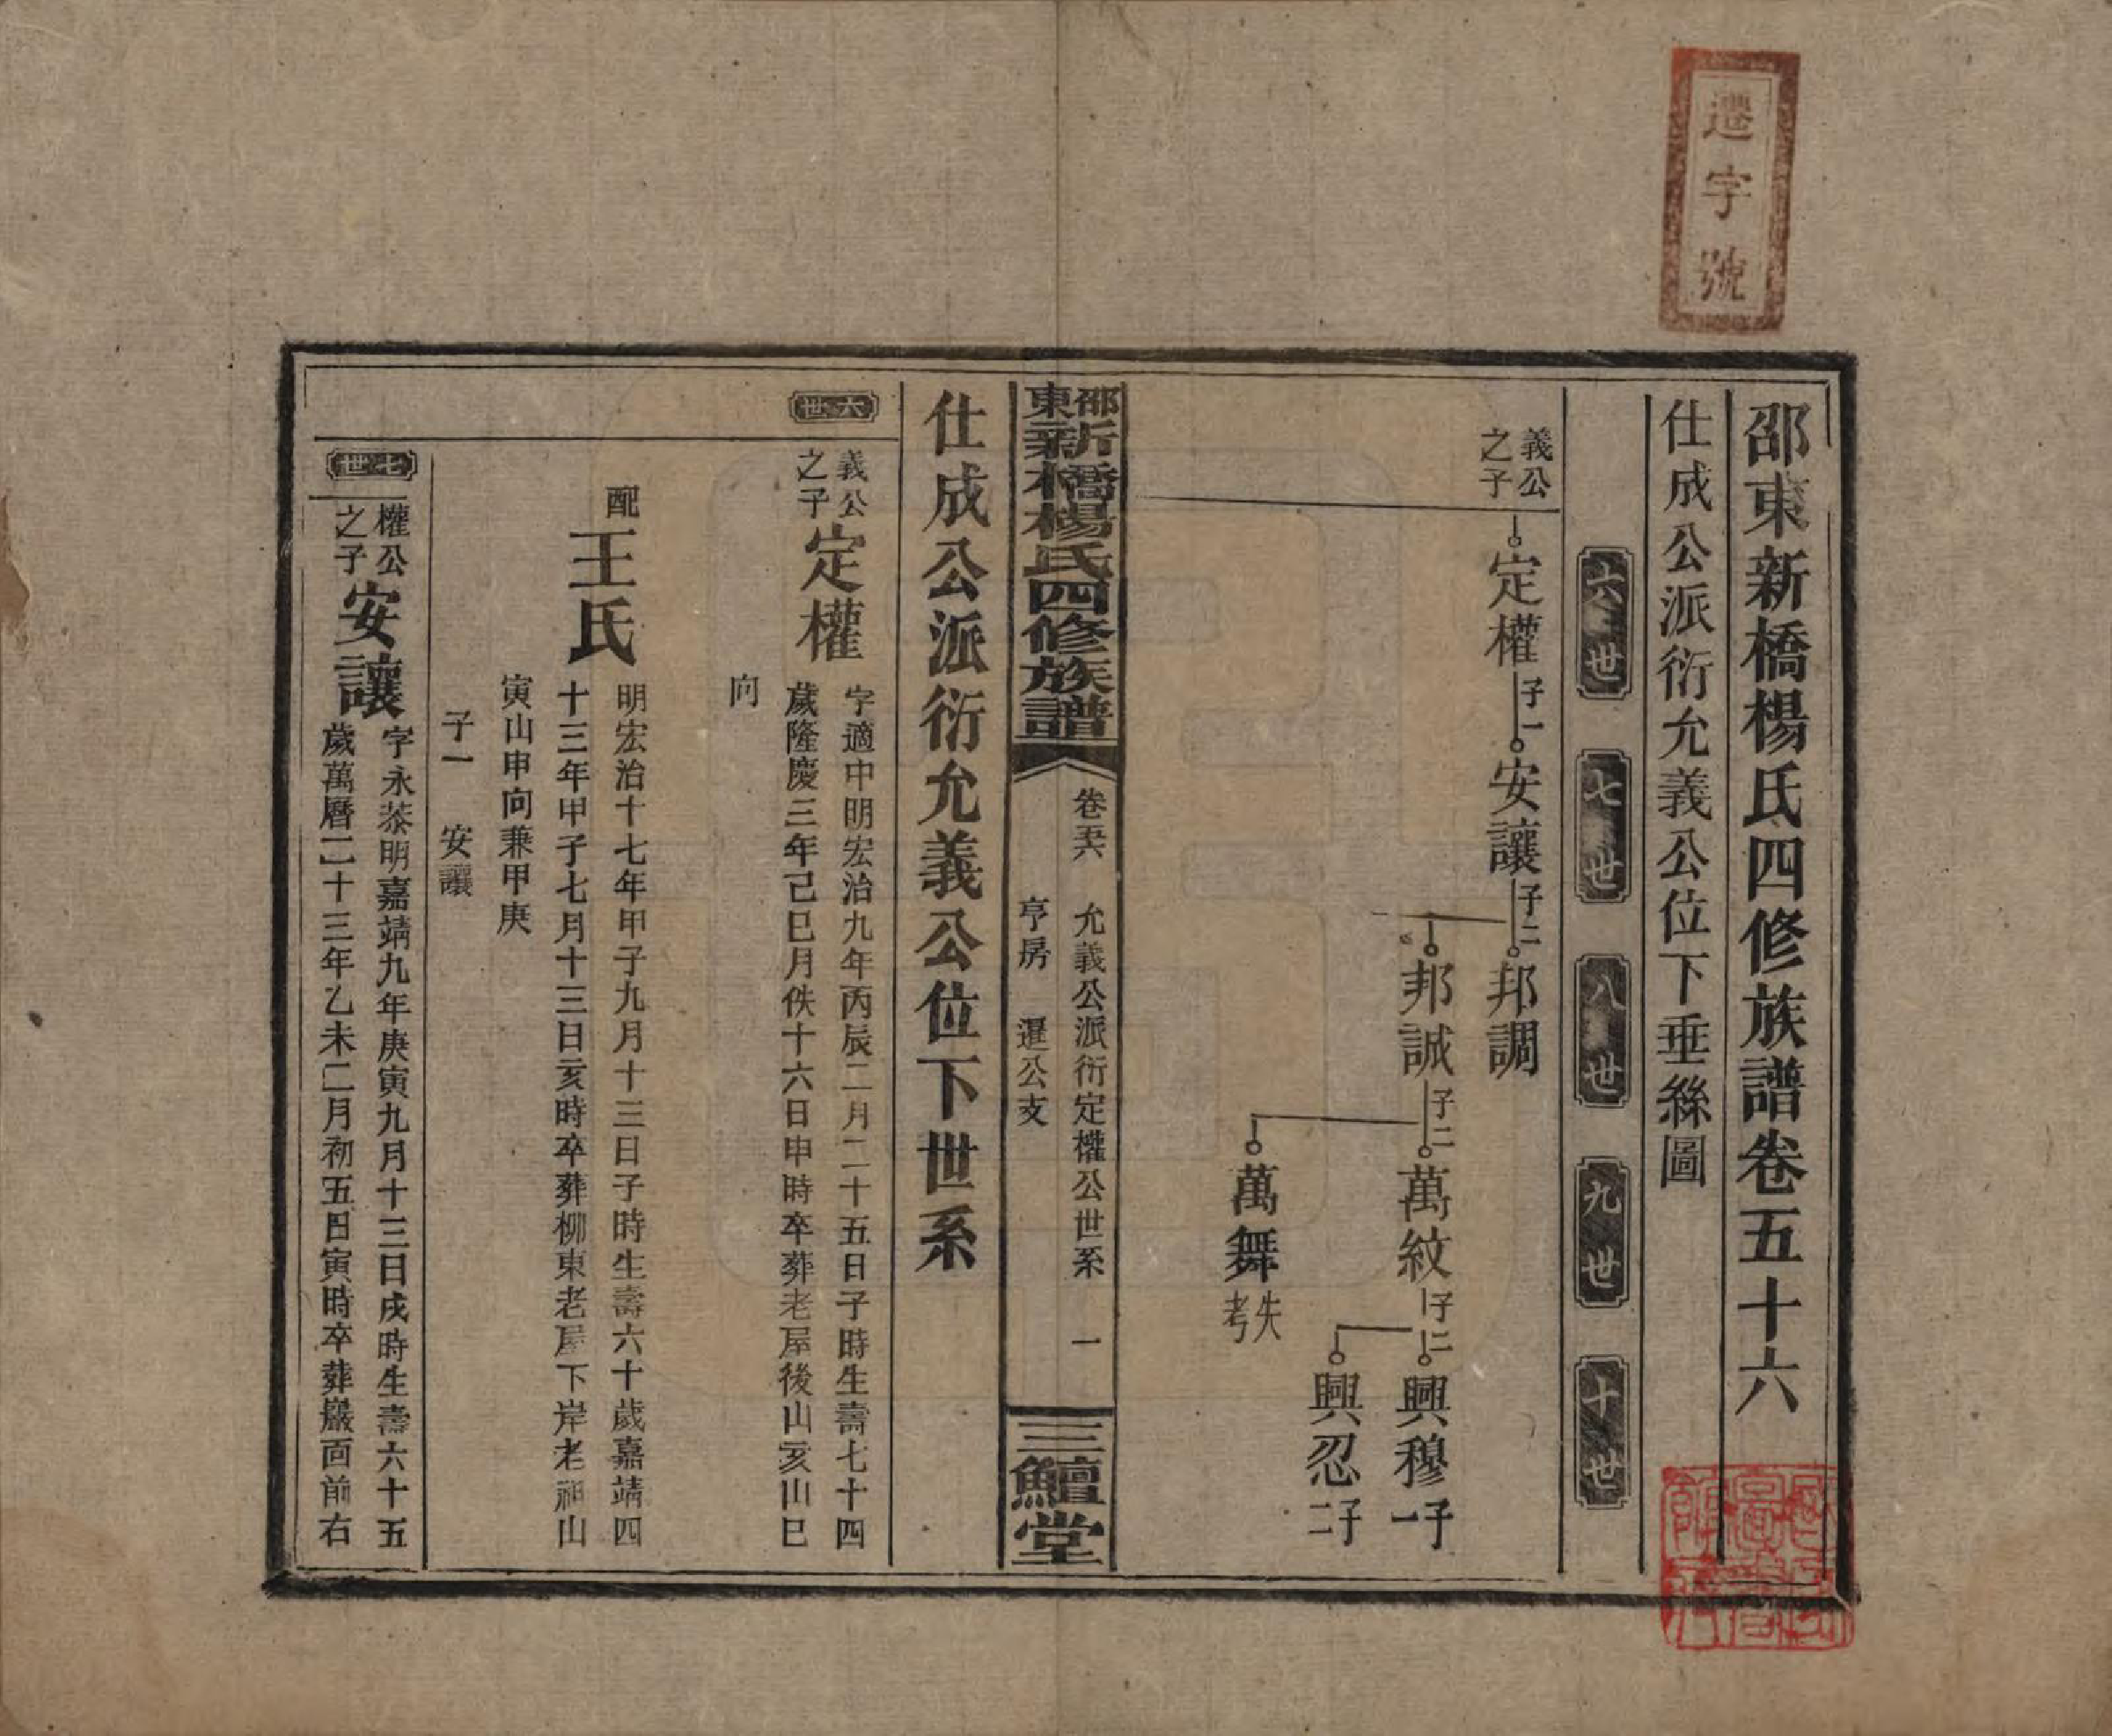 遷字號
邵東新橋楊氏四修族譜卷五十六
仕成公派衍允義公位下垂絲圖
六世 七世 八世 九世 十世
義公之子 定權 子一 安讓 子二 邦調
邦誠 子二 萬紋 子二 興穆 子一
興忍 子二
萬舞 失考
邵東新橋楊氏四修族譜 卷五六 允義公派衍定權公世系 一
亨房 暹公支
三鱣堂
仕成公派衍允義公位下世系
六世
義公之子 定權 字適中明宏治九年丙辰二月二十五日子時生壽七十四
歲隆慶三年己巳月佚十六日申時卒葬老屋後山亥山巳
向
配 王氏 明宏治十七年甲子九月十三日子時生壽六十歲嘉靖四
十三年甲子七月十三日亥時卒葬柳東老屋下岸老祖山
寅山申向兼甲庚
子一 安讓
七世
權公之子 安讓 字永泰明嘉靖九年庚寅九月十三日戌時生壽六十五
歲萬曆二十三年乙未二月初五日寅時卒葬巖面前右